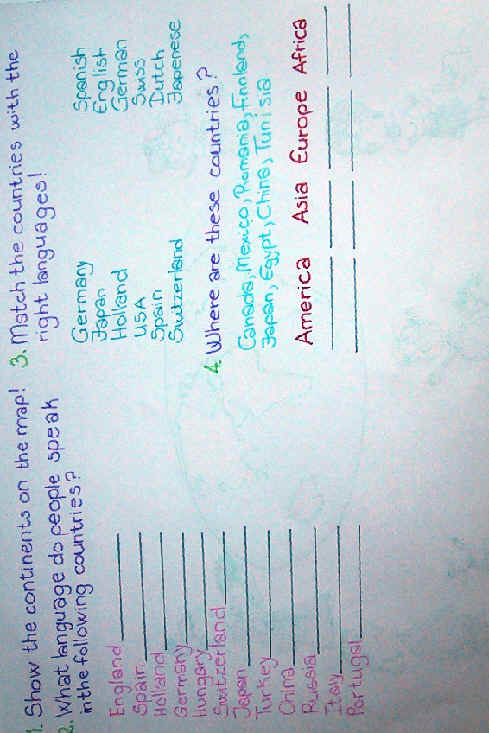 1. Show the continents on the map!
2. What language do people speak
in the following countries?
England
Spain
Holland
Germany
Hungary
Switzerland
Japan
Turkey
China
Russia
Italy
Portugal
3. Match the countries with the
right languages!
Germany Spanish
Japan English
Holland German
USA Swiss
Spain Dutch
Switzerland Japenese
4. Where are these countries?
Canada, Mexico, Romania, Finnland,
Japan, Egypt, China, Tunisia
America Asia Europe Africa